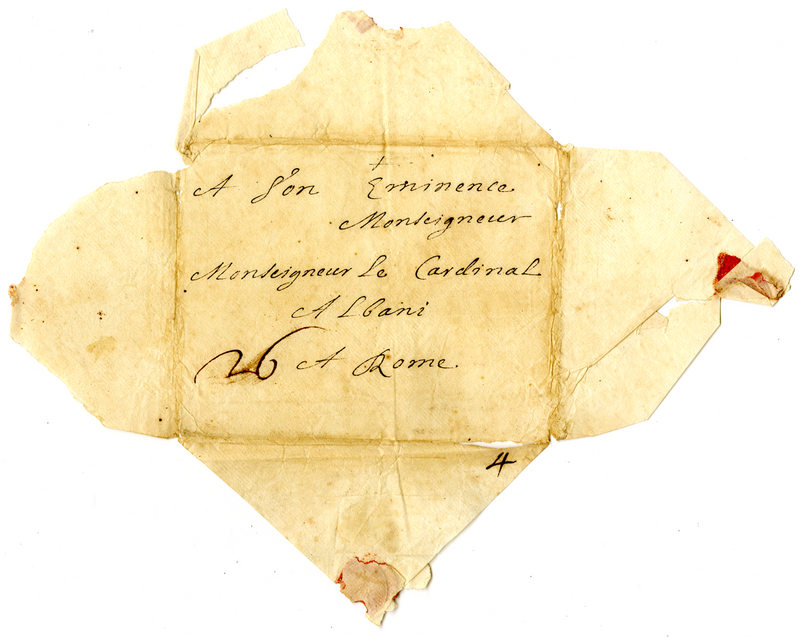 +
A Son Eminence
Monseigneur
Monseigneur Le Cardinal
Albani
26 A Rome.
4